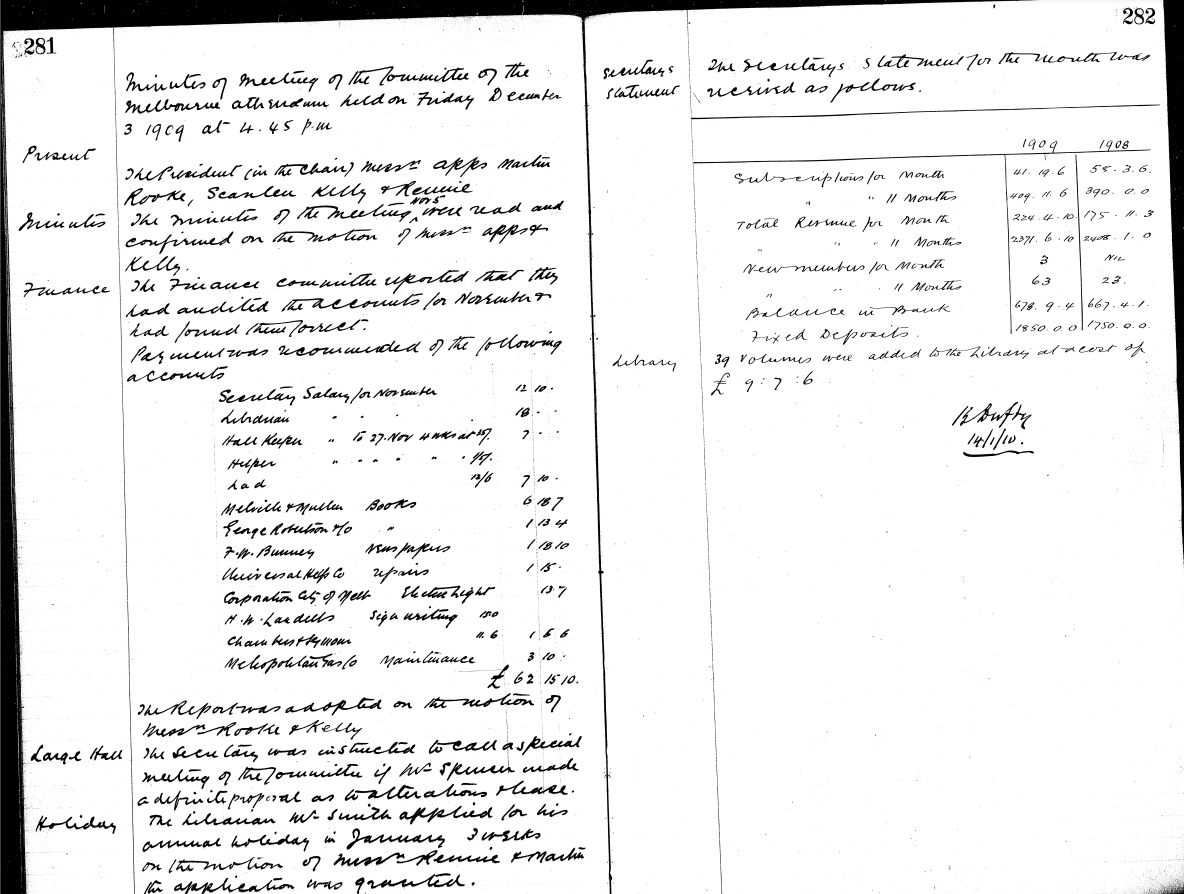 281
Minutes of Meeting of the Committee of the
Melbourne Athenaeum held on Friday December
3 1909 at 4.45 p.m
Present
The President (in the Chair) Messrs Apps Martin
Rooke, Scanlen Kelly & Rennie
Nov 5
Minutes The Minutes of the Meeting were read and
confirmed on the motion of Messrs Apps &
Kelly.
Finance The Finance Committee reported that they
had audited the accounts for November &
had found them correct.
Payment was recommended of the following
accounts
Secretary Salary for November 12 10 -
Librarian " " 18 - -
Hall Keeper " to 27 Nov 4 wks at 35/- 7 - -
Helper " " " " " "
Lad 12/6 7 10 -
Melville & Mullen Books 6 18 7
George Robertson & Co " 1 13 4
F. W. Bunney Newspapers 1 18 10
Universal Help Co repairs 1 15 -
Corporation City of Melb Electric Light 13 7
H. W. Landells Sign writing 15 0
Chambers & Seymour 11.6 1 6 6
Metropolitan Gas Co Maintinance 3 10 -
£ 62 15 10.
The Report was adopted on the motion of
Messrs Rooke & Kelly
Large Hall The Secretary was instructed to call a special
meeting of the Committee if Mr Spencer made
a definite proposal as to alterations & lease.
Holiday The Librarian Mr Smith applied for his
annual holiday in January 3 weeks
on the motion of Messrs Rennie & Martin
the application was granted.
282
Secretarys The Secretarys Statement for the month was
Statement received as follows.
1909 1908
Subscriptions for Month 41. 19. 6 55. 3. 6.
" " 11 Months 409. 11. 6 390. 0. 0
Total Revenue for Month 224. 4. 10. 175. 11. 3
" " " 11 Months 2371. 6. 10 2408. 1. 0
New members for Month 3 Nil
" " " 11 Months 63 23.
Balance in Bank 678. 9. 4 667. 4. 1.
Fixed Deposits. 1850. 0. 0 1750. 0. 0.
Library 39 volumes were added to the Library at a cost of
£ 9 : 7 : 6
14/1/10.